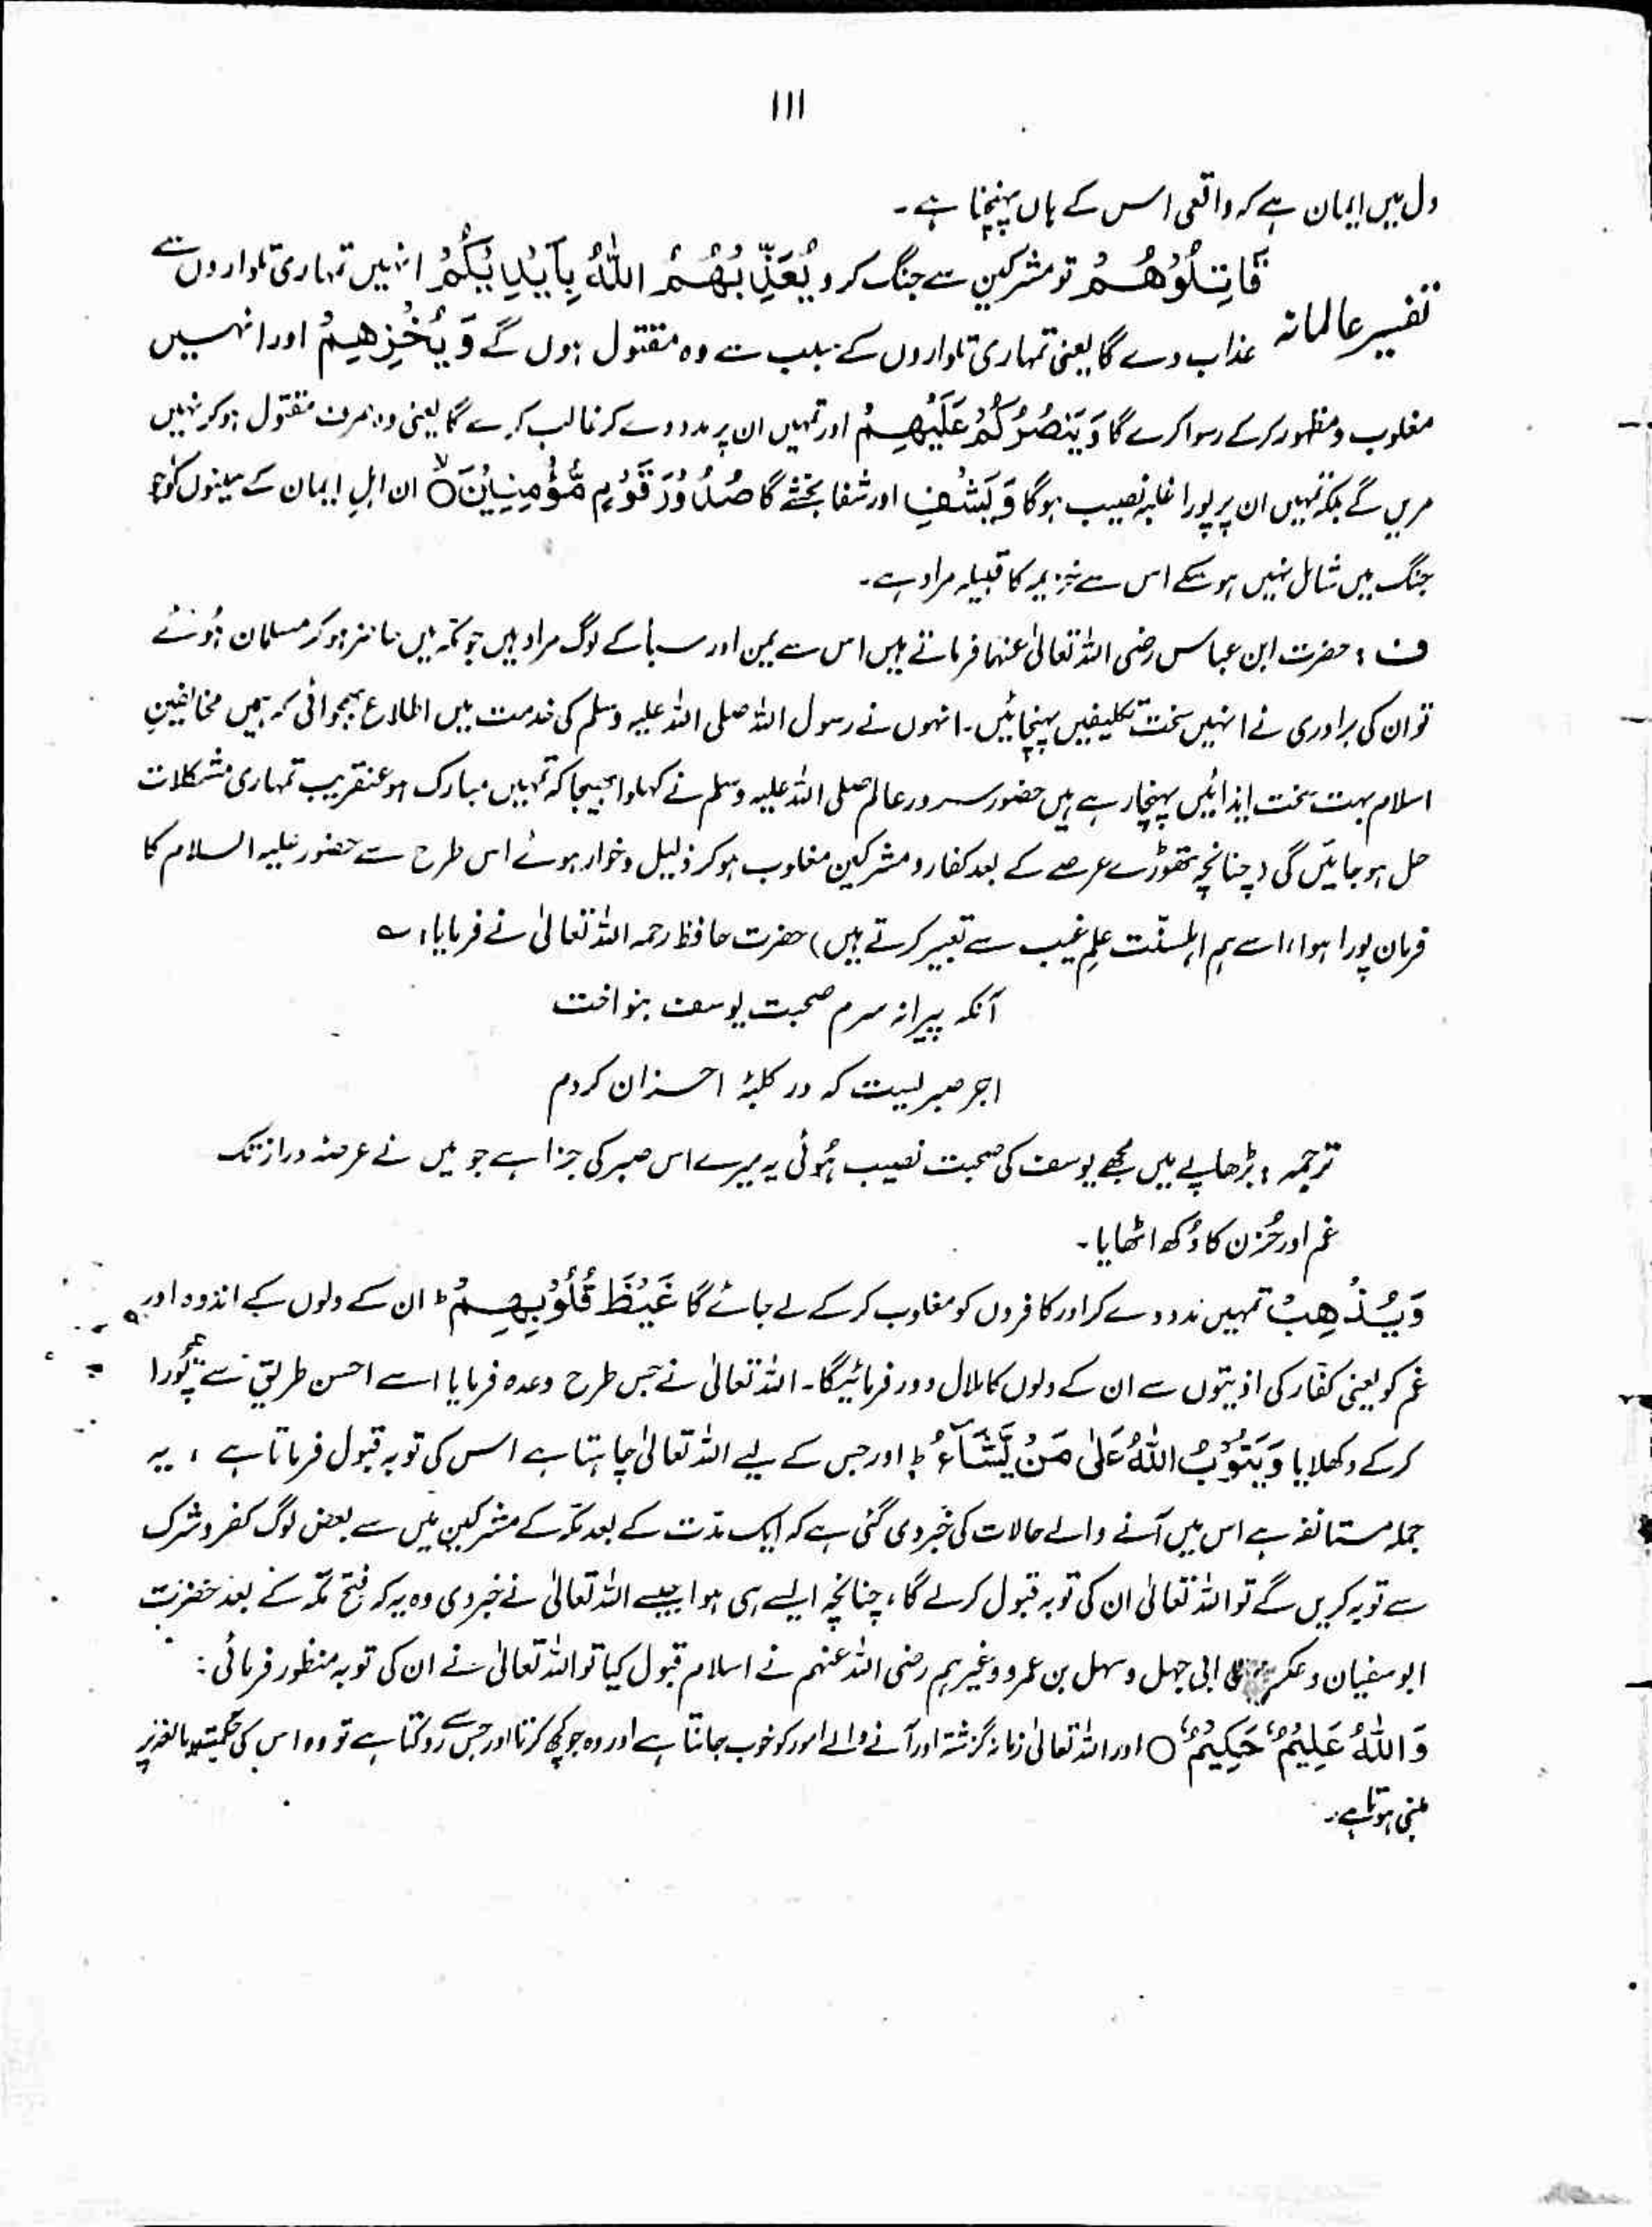 ۱۱۱
دل میں ایمان ہے کہ واقعی اس کے ہاں پہنچنا ہے۔
تفسیر عالمانہ
قَاتِلُوْهُمْ تو مشرکین سے جنگ کرو يُعَذِّبْهُمُ اللّٰهُ بِاَيْدِيْكُمْ انہیں تمہاری تلواروں سے
عذاب دے گا یعنی تمہاری تلواروں کے سبب سے وہ مقتول ہوں گے وَيُخْزِهِمْ اور انہیں
مغلوب و مقہور کرکے رسوا کرے گا وَيَنْصُرْكُمْ عَلَيْهِمْ اور تمہیں ان پر مدد دے کر غالب کرے گا یعنی وہ صرف مقتول ہو کر نہیں
مریں گے بلکہ تمہیں ان پر پورا غلبہ نصیب ہوگا وَيَشْفِ اور شفا بخشے گا صُدُوْرَ قَوْمٍ مُّؤْمِنِيْنَ ۙ○ ان اہلِ ایمان کے سینوں کو جو
جنگ میں شامل نہیں ہو سکے اس سے خزیمہ کا قبیلہ مراد ہے۔
ف : حضرت ابن عباس رضی اللہ تعالیٰ عنہما فرماتے ہیں اس سے یمن اور سبأ کے لوگ مراد ہیں جو مکہ میں حاضر ہو کر مسلمان ہوئے
تو ان کی برادری نے انہیں سخت تکلیفیں پہنچائیں۔ انہوں نے رسول اللہ صلی اللہ علیہ وسلم کی خدمت میں اطلاع بھجوائی کہ ہمیں مخالفینِ
اسلام بہت سخت ایذائیں پہنچا رہے ہیں حضور سرور عالم صلی اللہ علیہ وسلم نے کہلوا بھیجا کہ تمہیں مبارک ہو عنقریب تمہاری مشکلات
حل ہو جائیں گی (چنانچہ تھوڑے عرصے کے بعد کفار و مشرکین مغلوب ہو کر ذلیل و خوار ہوئے اس طرح سے حضور علیہ السلام کا
فرمان پورا ہوا، اسے ہم اہلسنّت علمِ غیب سے تعبیر کرتے ہیں) حضرت حافظ رحمہ اللہ تعالیٰ نے فرمایا : ؎
آنکہ پیرانہ سرم صحبت یوسف بنواخت
اجر صبریست کہ در کلبۂ احزان کردم
ترجمہ : بڑھاپے میں مجھے یوسف کی صحبت نصیب ہُوئی یہ میرے اس صبر کی جزا ہے جو میں نے عرصۂ دراز تک
غم اور حُزن کا دُکھ اٹھایا۔
وَيُذْهِبْ تمہیں مدد دے کر اور کافروں کو مغلوب کرکے لے جائے گا غَيْظَ قُلُوْبِهِمْ ؕ ان کے دلوں کے اندوہ اور
غم کو یعنی کفّار کی اذیتوں سے ان کے دلوں کا ملال دور فرمائیگا۔ اللہ تعالیٰ نے جس طرح وعدہ فرمایا اسے احسن طریق سے پُورا
کرکے دکھلایا وَيَتُوْبُ اللّٰهُ عَلٰى مَنْ يَّشَآءُ ؕ اور جس کے لیے اللہ تعالیٰ چاہتا ہے اس کی توبہ قبول فرماتا ہے ، یہ
جملہ مستانفہ ہے اس میں آنے والے حالات کی خبر دی گئی ہے کہ ایک مدّت کے بعد مکّہ کے مشرکین میں سے بعض لوگ کفر و شرک
سے توبہ کریں گے تو اللہ تعالیٰ ان کی توبہ قبول کرلے گا ، چنانچہ ایسے ہی ہوا جیسے اللہ تعالیٰ نے خبر دی وہ یہ کہ فتح مکّہ کے بعد حضرت
ابو سفیان و عکرمہ ابی جہل و سہل بن عمرو وغیرہم رضی اللہ عنہم نے اسلام قبول کیا تو اللہ تعالیٰ نے ان کی توبہ منظور فرمائی :
وَاللّٰهُ عَلِيْمٌ حَكِيْمٌ ○ اور اللہ تعالیٰ زمانہ گزشتہ اور آنے والے امور کو خوب جانتا ہے اور وہ جو کچھ کرتا اور جس سے روکتا ہے تو وہ اس کی حکمت بالغہ پر
مبنی ہوتا ہے۔